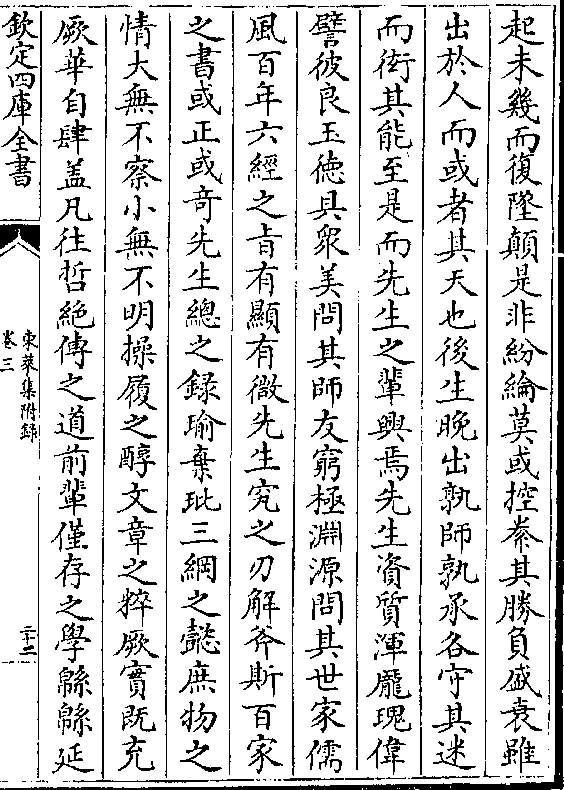 起未幾而復墜顛是非紛綸莫或控摶其勝負盛衰雖
出於人而或者其天也後生晚出孰師孰承各守其迷
而衒其能至是而先生之輩興焉先生資質渾龐瑰偉
譬彼良玉徳具衆美問其師友窮極淵源問其世家儒
風百年六經之㫖有顯有微先生究之刃解斧斯百家
之書或正或竒先生總之録瑜棄玼三綱之懿庶物之
情大無不察小無不明操履之醇文章之粹厥實既充
厥華自肆盖凡往哲絶傳之道前輩僅存之學緜緜延
欽定四庫全書
東萊集附録
卷三
二十二